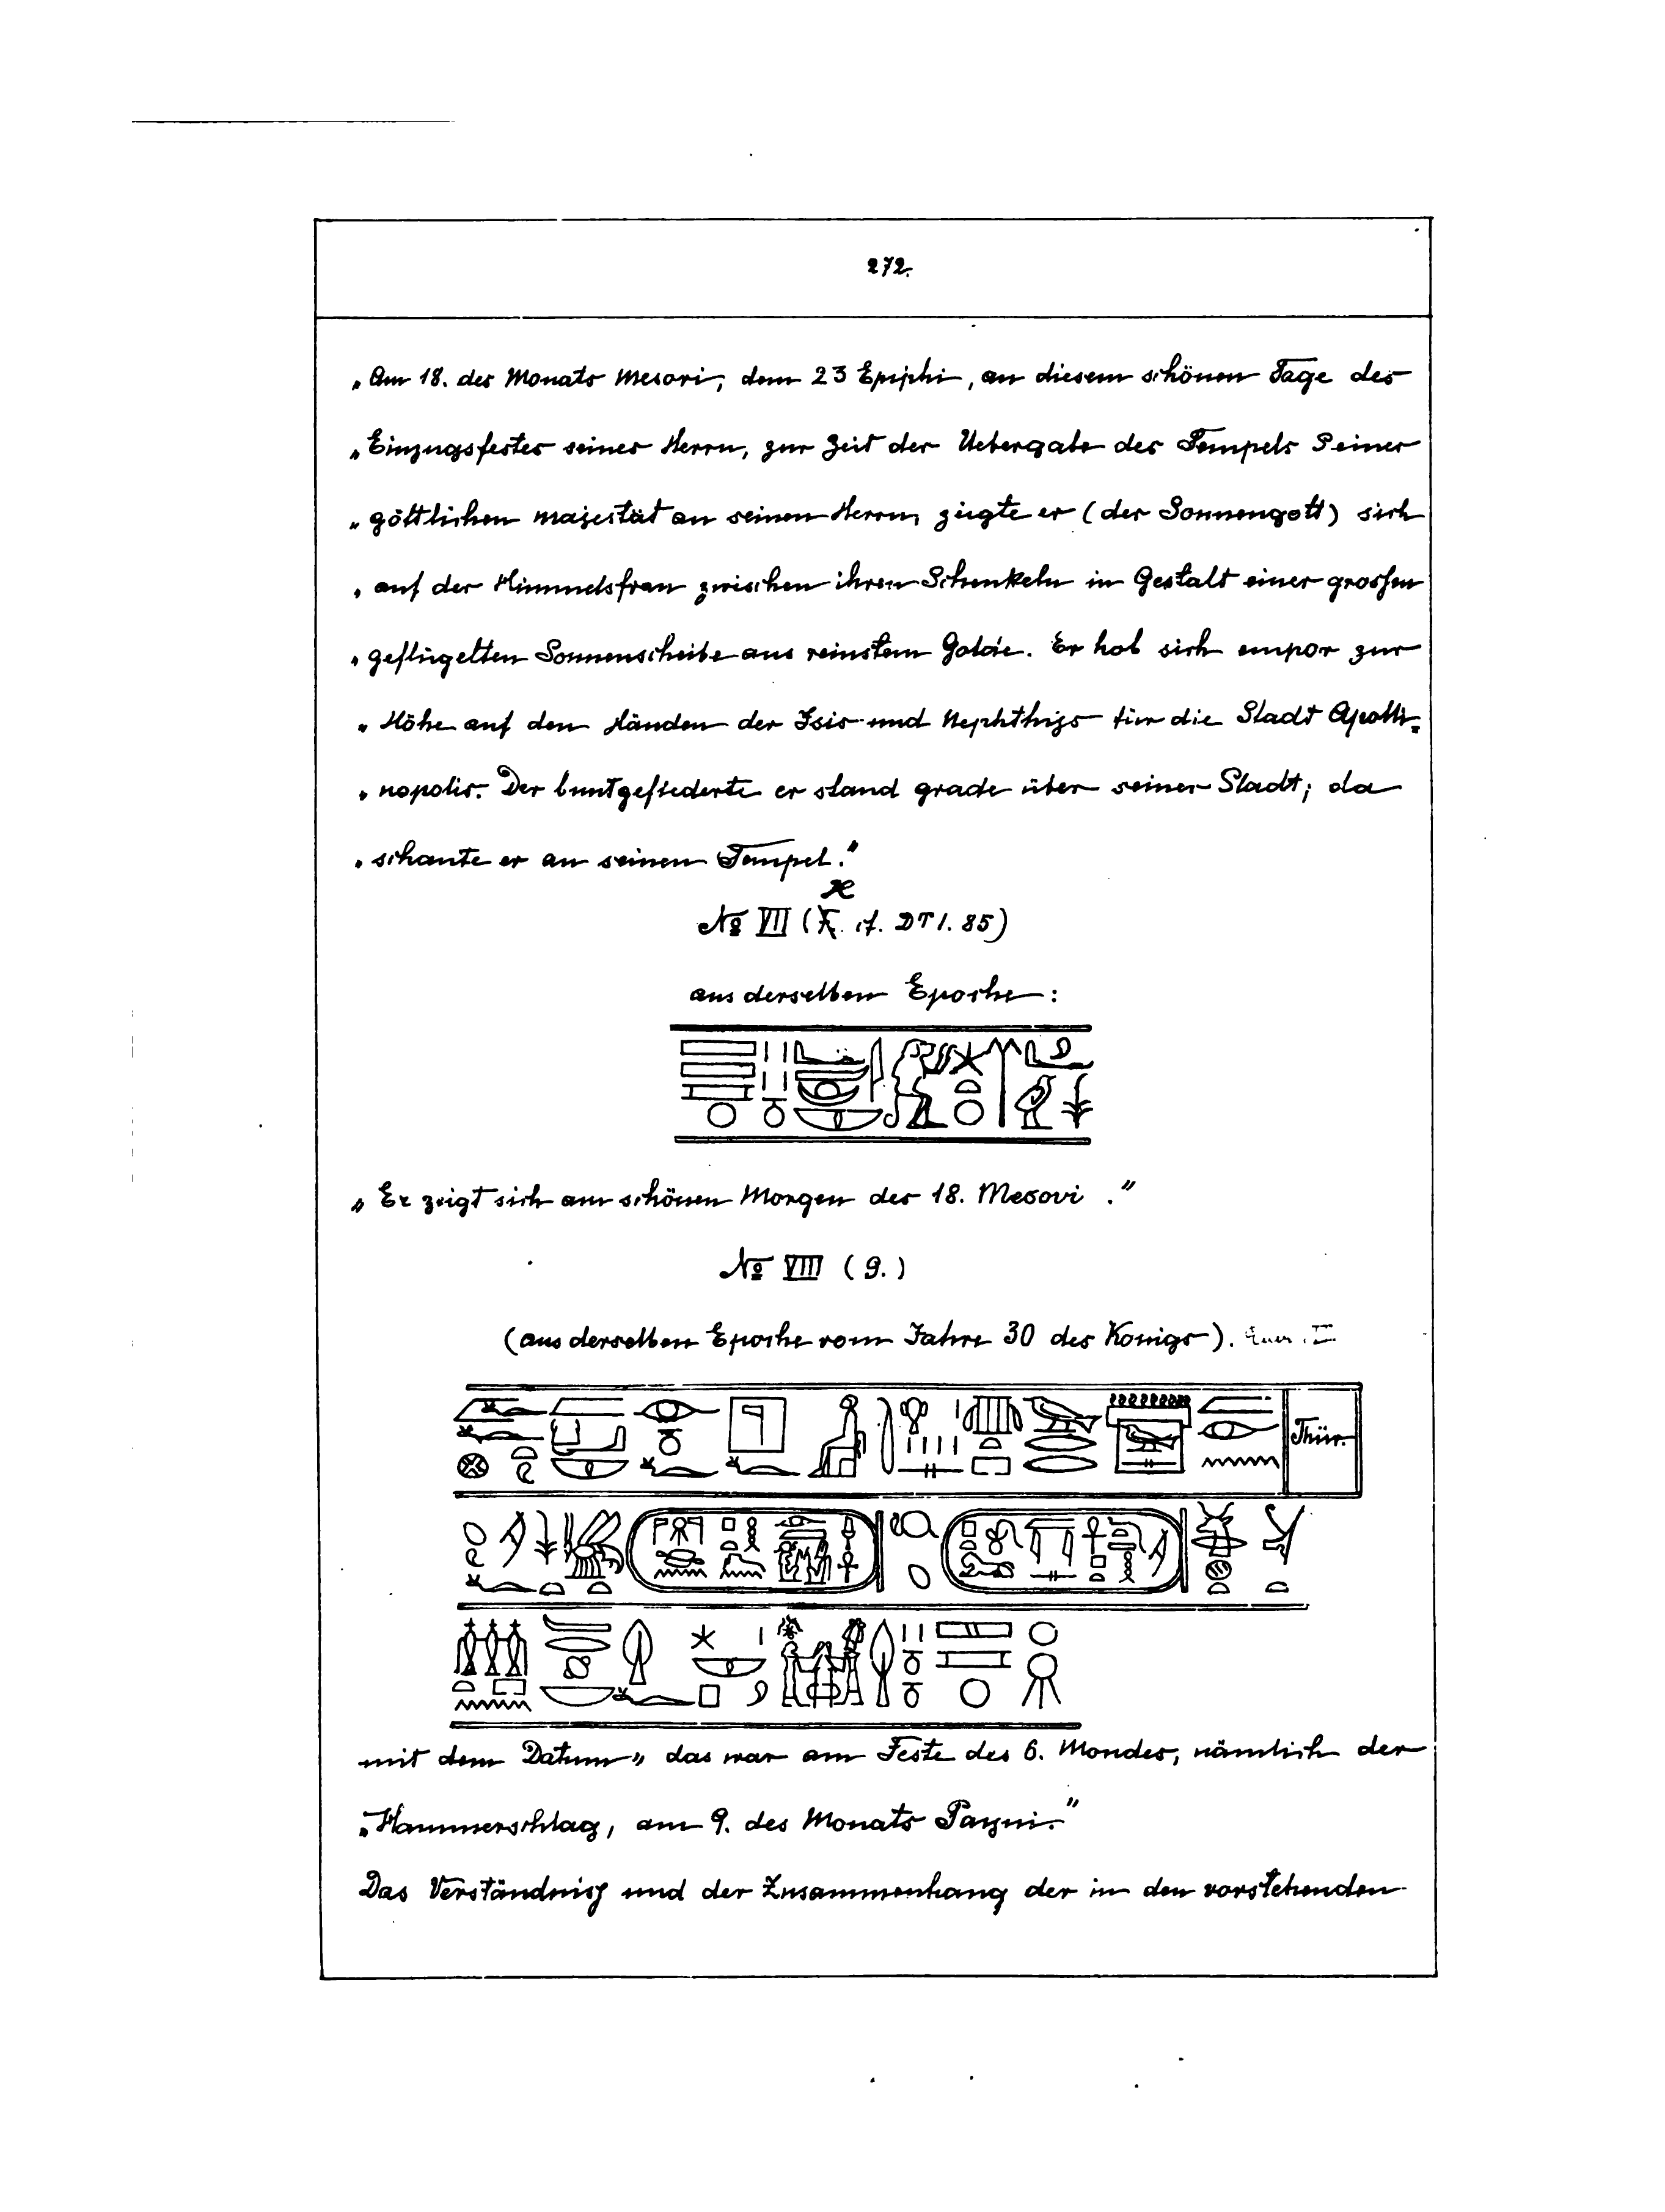 272.
„Am 18. des Monats Mesori, dem 23 Epiphi, an diesem schönen Tage des
„Einzugsfestes seines Herrn, zur Zeit der Uebergabe des Tempels Seiner
„göttlichen Majestät an seinen Herrn, zeigte er (der Sonnengott) sich
„auf der Himmelsfrau zwischen ihren Schenkeln in Gestalt einer grossen
„geflügelten Sonnenscheibe aus reinstem Golde. Er hob sich empor zur
„Höhe auf den Händen der Isis und Nephthys für die Stadt Apolli=
„nopolis. Der buntgefiederte er stand grade über seiner Stadt; da
„schaute er an seinen Tempel."
No VII ( 17. DTI. 85)
aus derselben Epoche:
„Er zeigt sich am schönen Morgen des 18. Mesori ."
No VIII (9.)
(aus derselben Epoche vom Jahre 30 des Königs).
Thür.
mit dem Datum „das war am Feste des 6. Mondes, nämlich der
„Hammerschlag, am 9. des Monats Payni."
Das Verständniss und der Zusammenhang der in den vorstehenden